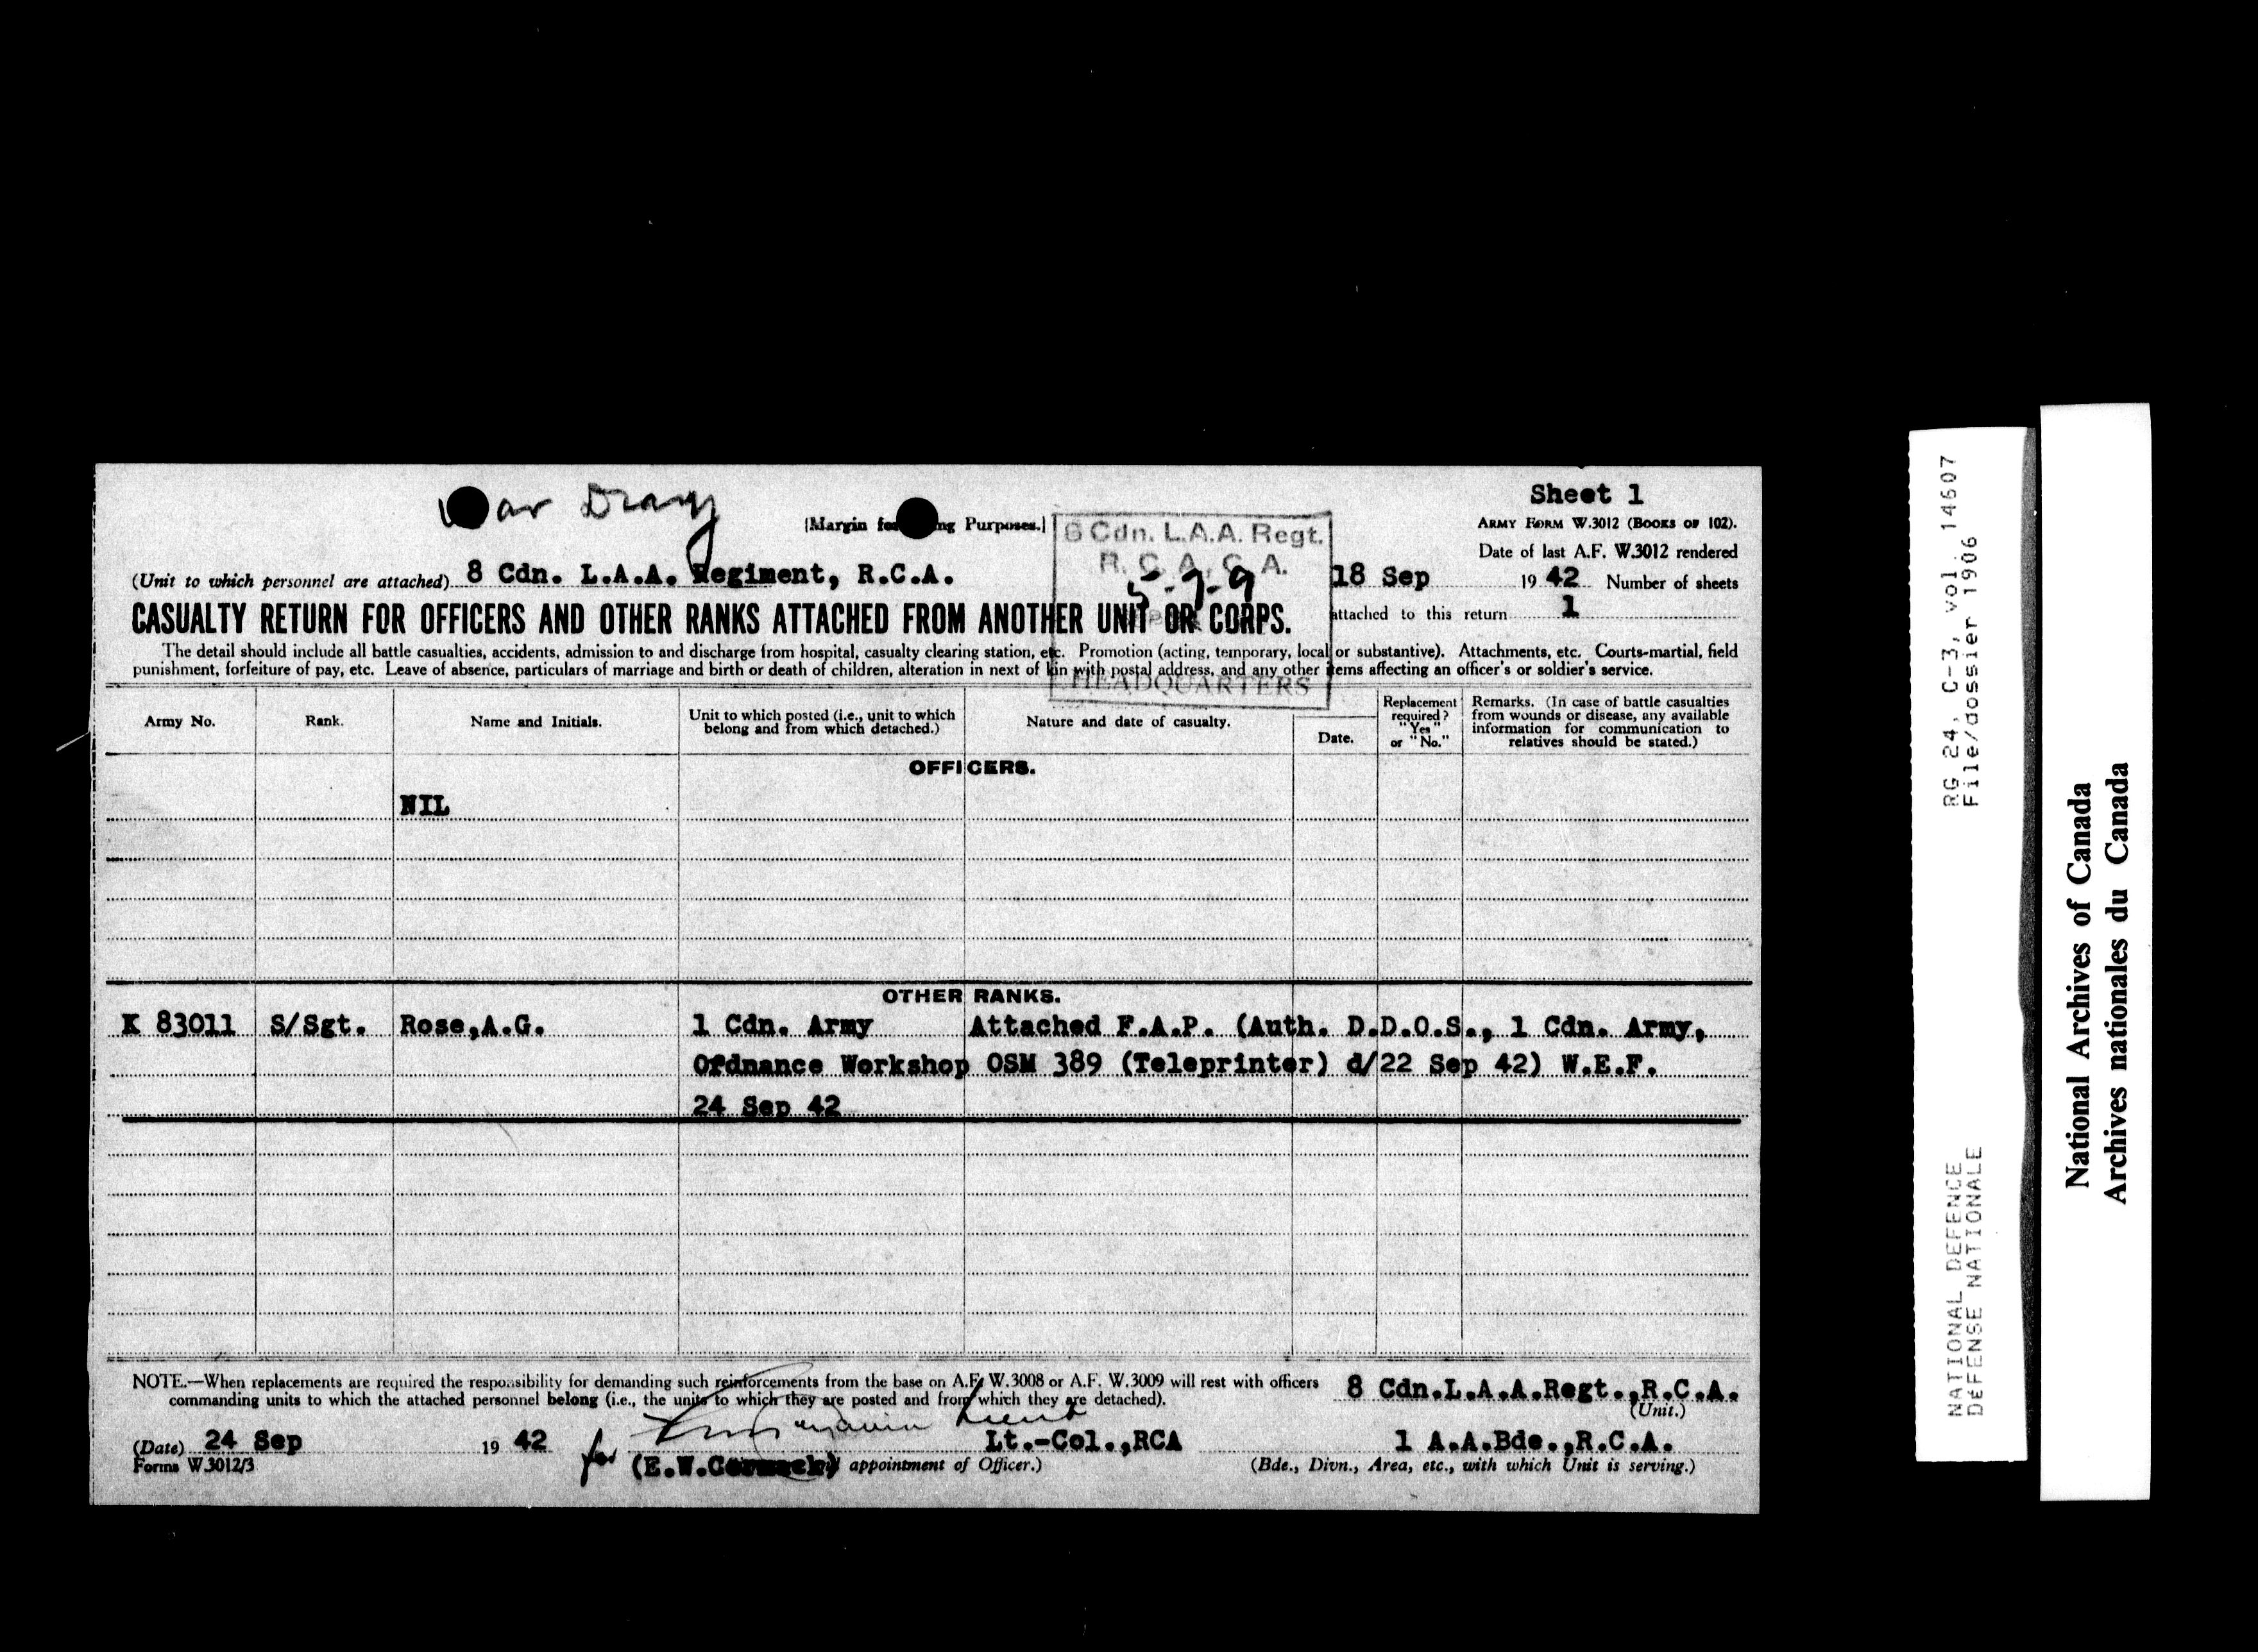 War Diary
Sheet 1
[Margin for ng Purposes.]
ARMY FORM W.3012 (BOOKS OF 102).
8 Cdn. L.A.A. Regt.
R.C.A., C.A.
5-7-9
HEADQUARTERS
Date of last A.F. W.3012 rendered
(Unit to which personnel are attached) 8 Cdn. L.A.A. Regiment, R.C.A.
18 Sep 19 42 Number of sheets
attached to this return 1
CASUALTY RETURN FOR OFFICERS AND OTHER RANKS ATTACHED FROM ANOTHER UNIT OR CORPS.
The detail should include all battle casualties, accidents, admission to and discharge from hospital, casualty clearing station, etc. Promotion (acting, temporary, local or substantive). Attachments, etc. Courts-martial, field
punishment, forfeiture of pay, etc. Leave of absence, particulars of marriage and birth or death of children, alteration in next of kin with postal address, and any other items affecting an officer's or soldier's service.
Army No.
Rank.
Name and Initials.
Unit to which posted (i.e., unit to which
belong and from which detached.)
Nature and date of casualty.
Date.
Replacement
required?
"Yes"
or "No."
Remarks. (In case of battle casualties
from wounds or disease, any available
information for communication to
relatives should be stated.)
OFFICERS.
NIL
OTHER RANKS.
K 83011 S/Sgt. Rose,A.G. 1 Cdn. Army Attached F.A.P. (Auth. D.D.O.S., 1 Cdn. Army,
Ordnance Workshop OSM 389 (Teleprinter) d/22 Sep 42) W.E.F.
24 Sep 42
NOTE.—When replacements are required the responsibility for demanding such reinforcements from the base on A.F. W.3008 or A.F. W.3009 will rest with officers
commanding units to which the attached personnel belong (i.e., the units to which they are posted and from which they are detached).
8 Cdn.L.A.A.Regt.,R.C.A.
(Unit.)
(Date) 24 Sep 19 42
for Lt.-Col.,RCA
1 A.A.Bde.,R.C.A.
Forms W.3012/3
(E.W.Cormack) appointment of Officer.)
(Bde., Divn., Area, etc., with which Unit is serving.)
RG 24, C-3, vol. 14607
File/dossier 1906
NATIONAL DEFENCE
DÉFENSE NATIONALE
National Archives of Canada
Archives nationales du Canada